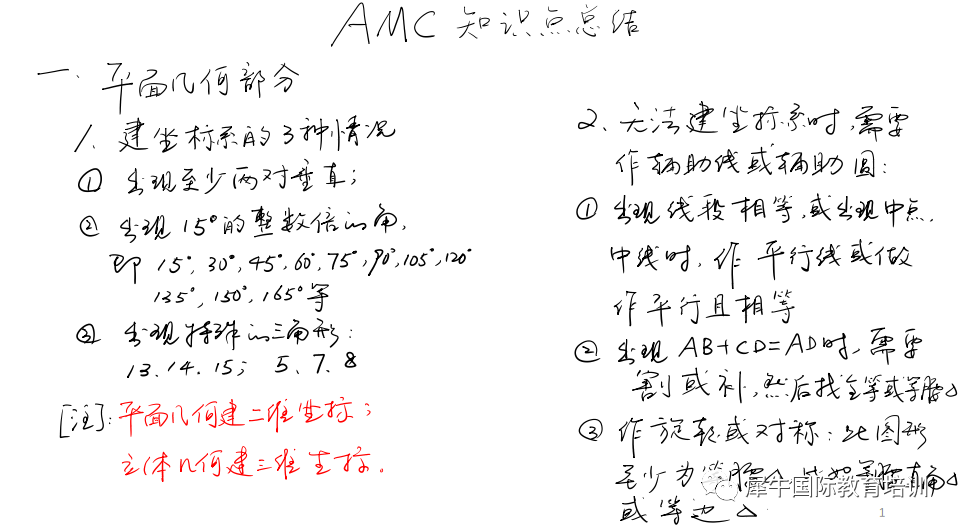 AMC 知识点总结
一. 平面几何部分
1. 建坐标系的3种情况
① 出现至少两对垂直;
② 出现15°的整数倍的角,
即 15°, 30°, 45°, 60°, 75°, 90°, 105°, 120°
135°, 150°, 165°等
③ 出现特殊的三角形:
13. 14. 15; 5. 7. 8
[注]: 平面几何建二维坐标;
立体几何建三维坐标.
2、无法建坐标系时,需要
作辅助线或辅助圆:
① 出现线段相等,或出现中点.
中线时, 作平行线或做
作平行且相等
② 出现 AB+CD=AD时, 需要
割或补, 然后找全等或等腰△
③ 作旋转或对称: 此图形
至少为等腰△ 比如等腰直角△
或等边△
犀牛国际教育培训
1